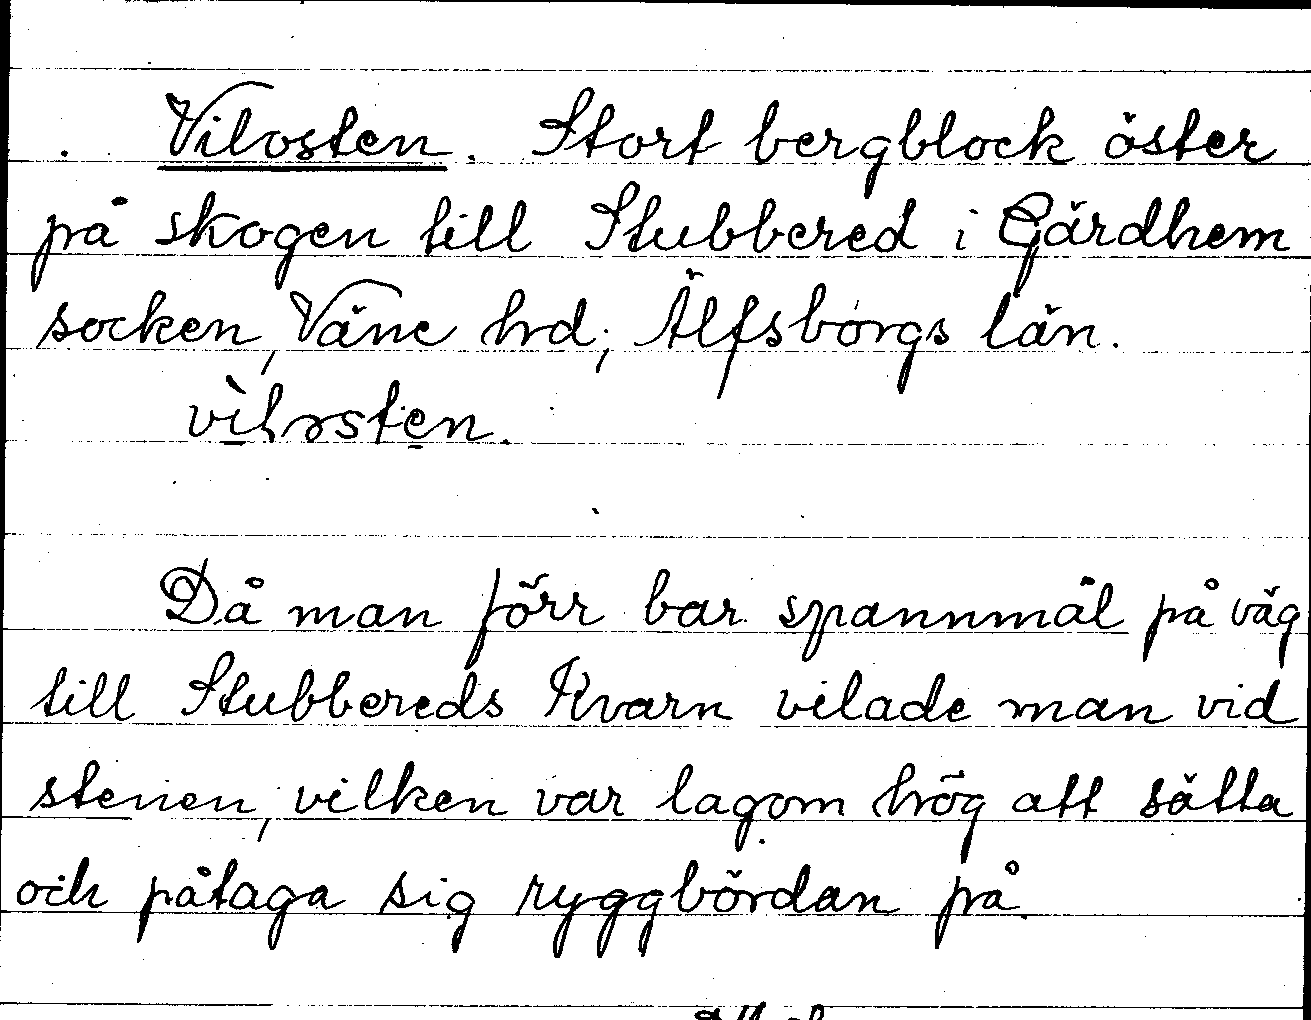 Vilosten. Stort bergblock öster
på skogen till Stubbered i Gärdhem
socken, Väne hrd, Älfsborgs län.
vìlɔsten.
Då man förr bar spannmål på väg
till Stubbereds Kvarn vilade man vid
stenen, vilken var lagom hög att sätta
och påtaga sig ryggbördan på.